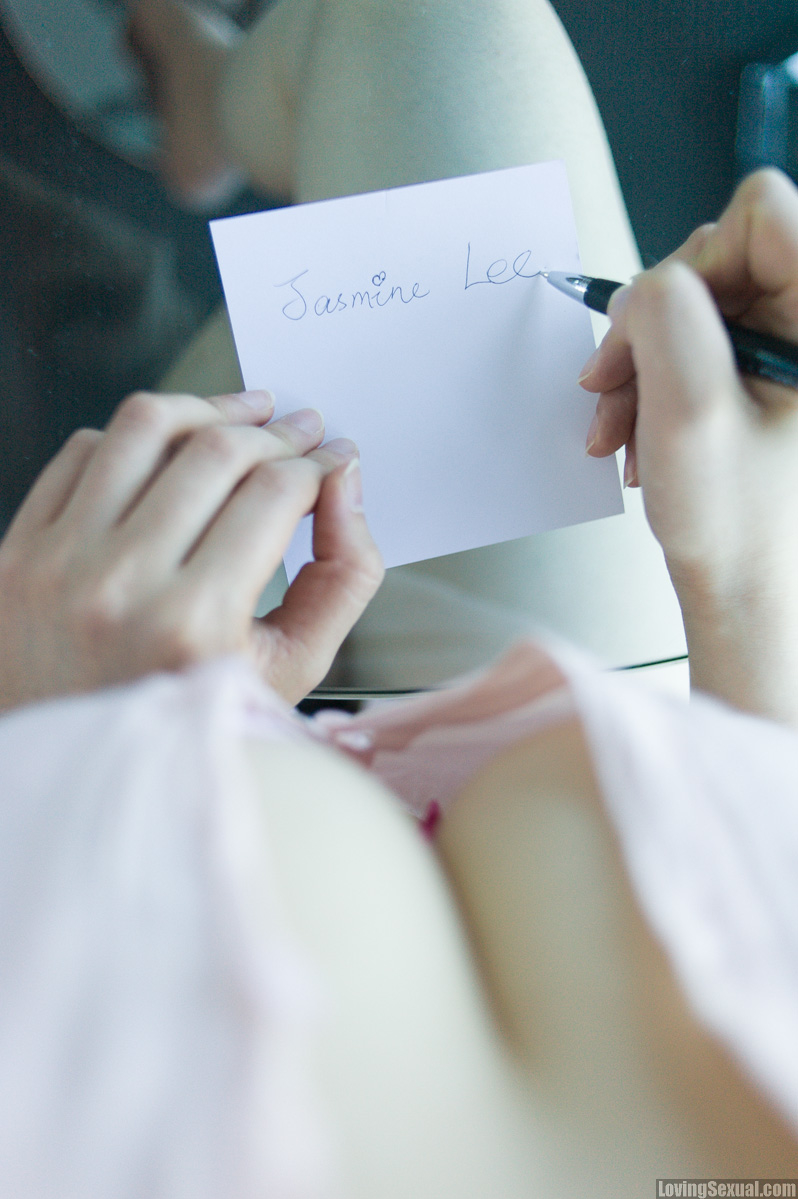 Jasmine Lee
LovingSexual.com